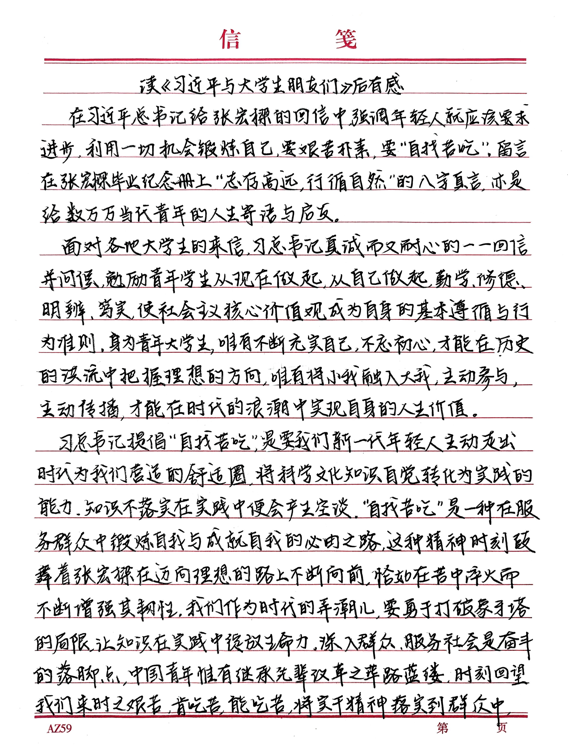 信 笺
读《习近平与大学生朋友们》后有感
在习近平总书记给张宏樑的回信中强调年轻人就应该要求
进步，利用一切机会锻炼自己，要艰苦朴素，要“自找苦吃”，留言
在张宏樑毕业纪念册上“志存高远，行循自然”的八字真言，亦是
给数万万当代青年的人生寄语与启友。
面对各地大学生的来信，习总书记真诚而又耐心的一一回信
并问候，勉励青年学生从现在做起，从自己做起，勤学、修德、
明辨、笃实，使社会主义核心价值观成为自身的基本遵循与行
为准则。身为青年大学生，唯有不断充实自己，不忘初心，才能在历史
的洪流中把握理想的方向，唯有将小我融入大我，主动参与，
主动传播，才能在时代的浪潮中实现自身的人生价值。
习总书记提倡“自找苦吃”，是要我们新一代年轻人主动走出
时代为我们营造的舒适圈，将科学文化知识自觉转化为实践的
能力，知识不落实在实践中便会产生空谈，“自找苦吃”是一种在服
务群众中锻炼自我与成就自我的必由之路，这种精神时刻鼓
舞着张宏樑在迈向理想的路上不断向前，恰如在苦中淬火而
不断增强其韧性，我们作为时代的弄潮儿，要勇于打破象牙塔
的局限，让知识在实践中绽放生命力，深入群众、服务社会是奋斗
的落脚点，中国青年惟有继承先辈改革之筚路蓝缕，时刻回望
我们来时之艰苦，肯吃苦，能吃苦，将实干精神落实到群众中，
AZ59 第 页